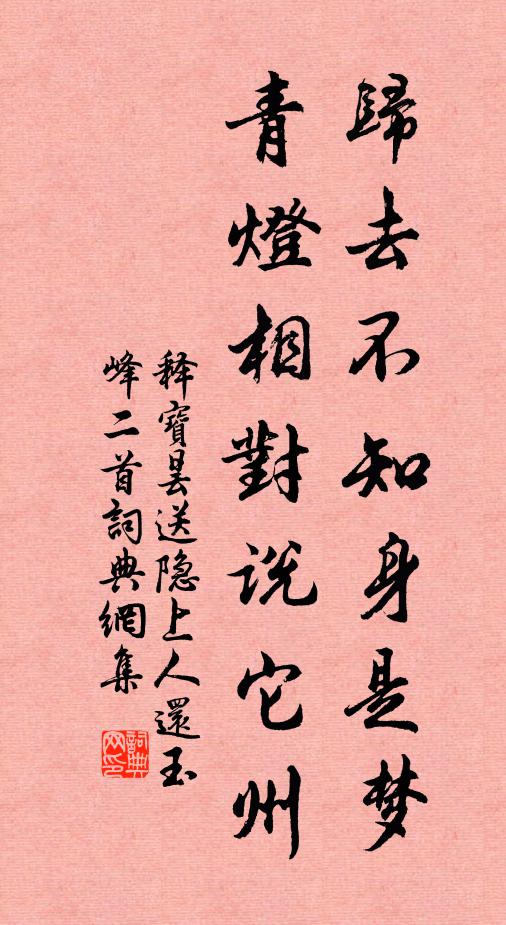 歸去不知身是梦
青燈相對说它州
释寶曇送隐上人還玉
峰二首詞典網集
詞典网印